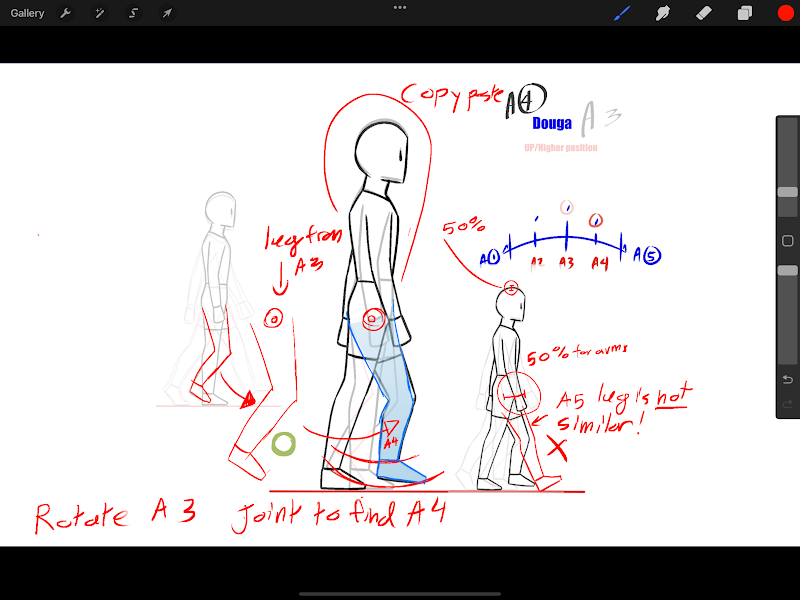 Gallery
Copy paste A4
Douga A3
UP/Higher position
50%
leg from
A3
A1 A2 A3 A4 A5
50% for arms
A5 leg is not
similar!
X
A4
Rotate A3 Joint to find A4